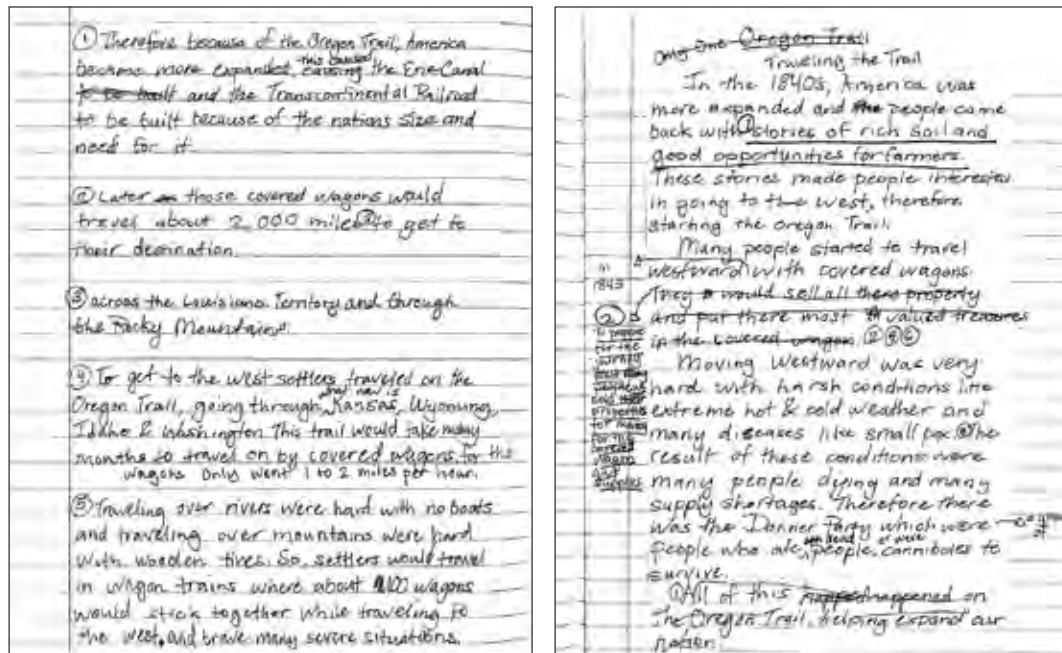 ① Therefore because of the Oregon Trail, America
became more expanded, this caused causing the Erie Canal
to be built and the Transcontinental Railroad
to be built because of the nations size and
need for it.
② Later on those covered wagons would
travel about 2,000 miles ③ to get to
their destination.
③ across the Louisiana Territory and through
the Rocky Mountains.
④ To get to the west settlers traveled on the
Oregon Trail, going through, what now is Kansas, Wyoming,
Idaho & Washington. This trail would take many
months to travel on by covered wagons, for the
wagons only went 1 to 2 miles per hour.
⑤ Traveling over rivers were hard with no boats
and traveling over mountains were hard
with wooden tires. So, settlers would travel
in wagon trains where about 100 wagons
would stick together while traveling to
the west, and brave many severe situations.
Only One Oregon Trail
Traveling the Trail
In the 1840s, America was
more expanded and the people came
back with stories of rich soil and
good opportunities for farmers.
These stories made people interested
in going to the west, therefore
starting the Oregon Trail.
Many people started to travel
in 1843
westward with covered wagons.
They would sell all there property
② and put there most valued treasures
in the covered wagon. ② ④ ⑤
Moving Westward was very
hard with harsh conditions like
extreme hot & cold weather and
many diseases like small pox. The
result of these conditions were
many people dying and many
supply shortages. Therefore there
was the Donner Party which were
people who ate dead people, or were canniboles to
survive.
All of this happened on
The Oregon Trail, helping expand our
nation.